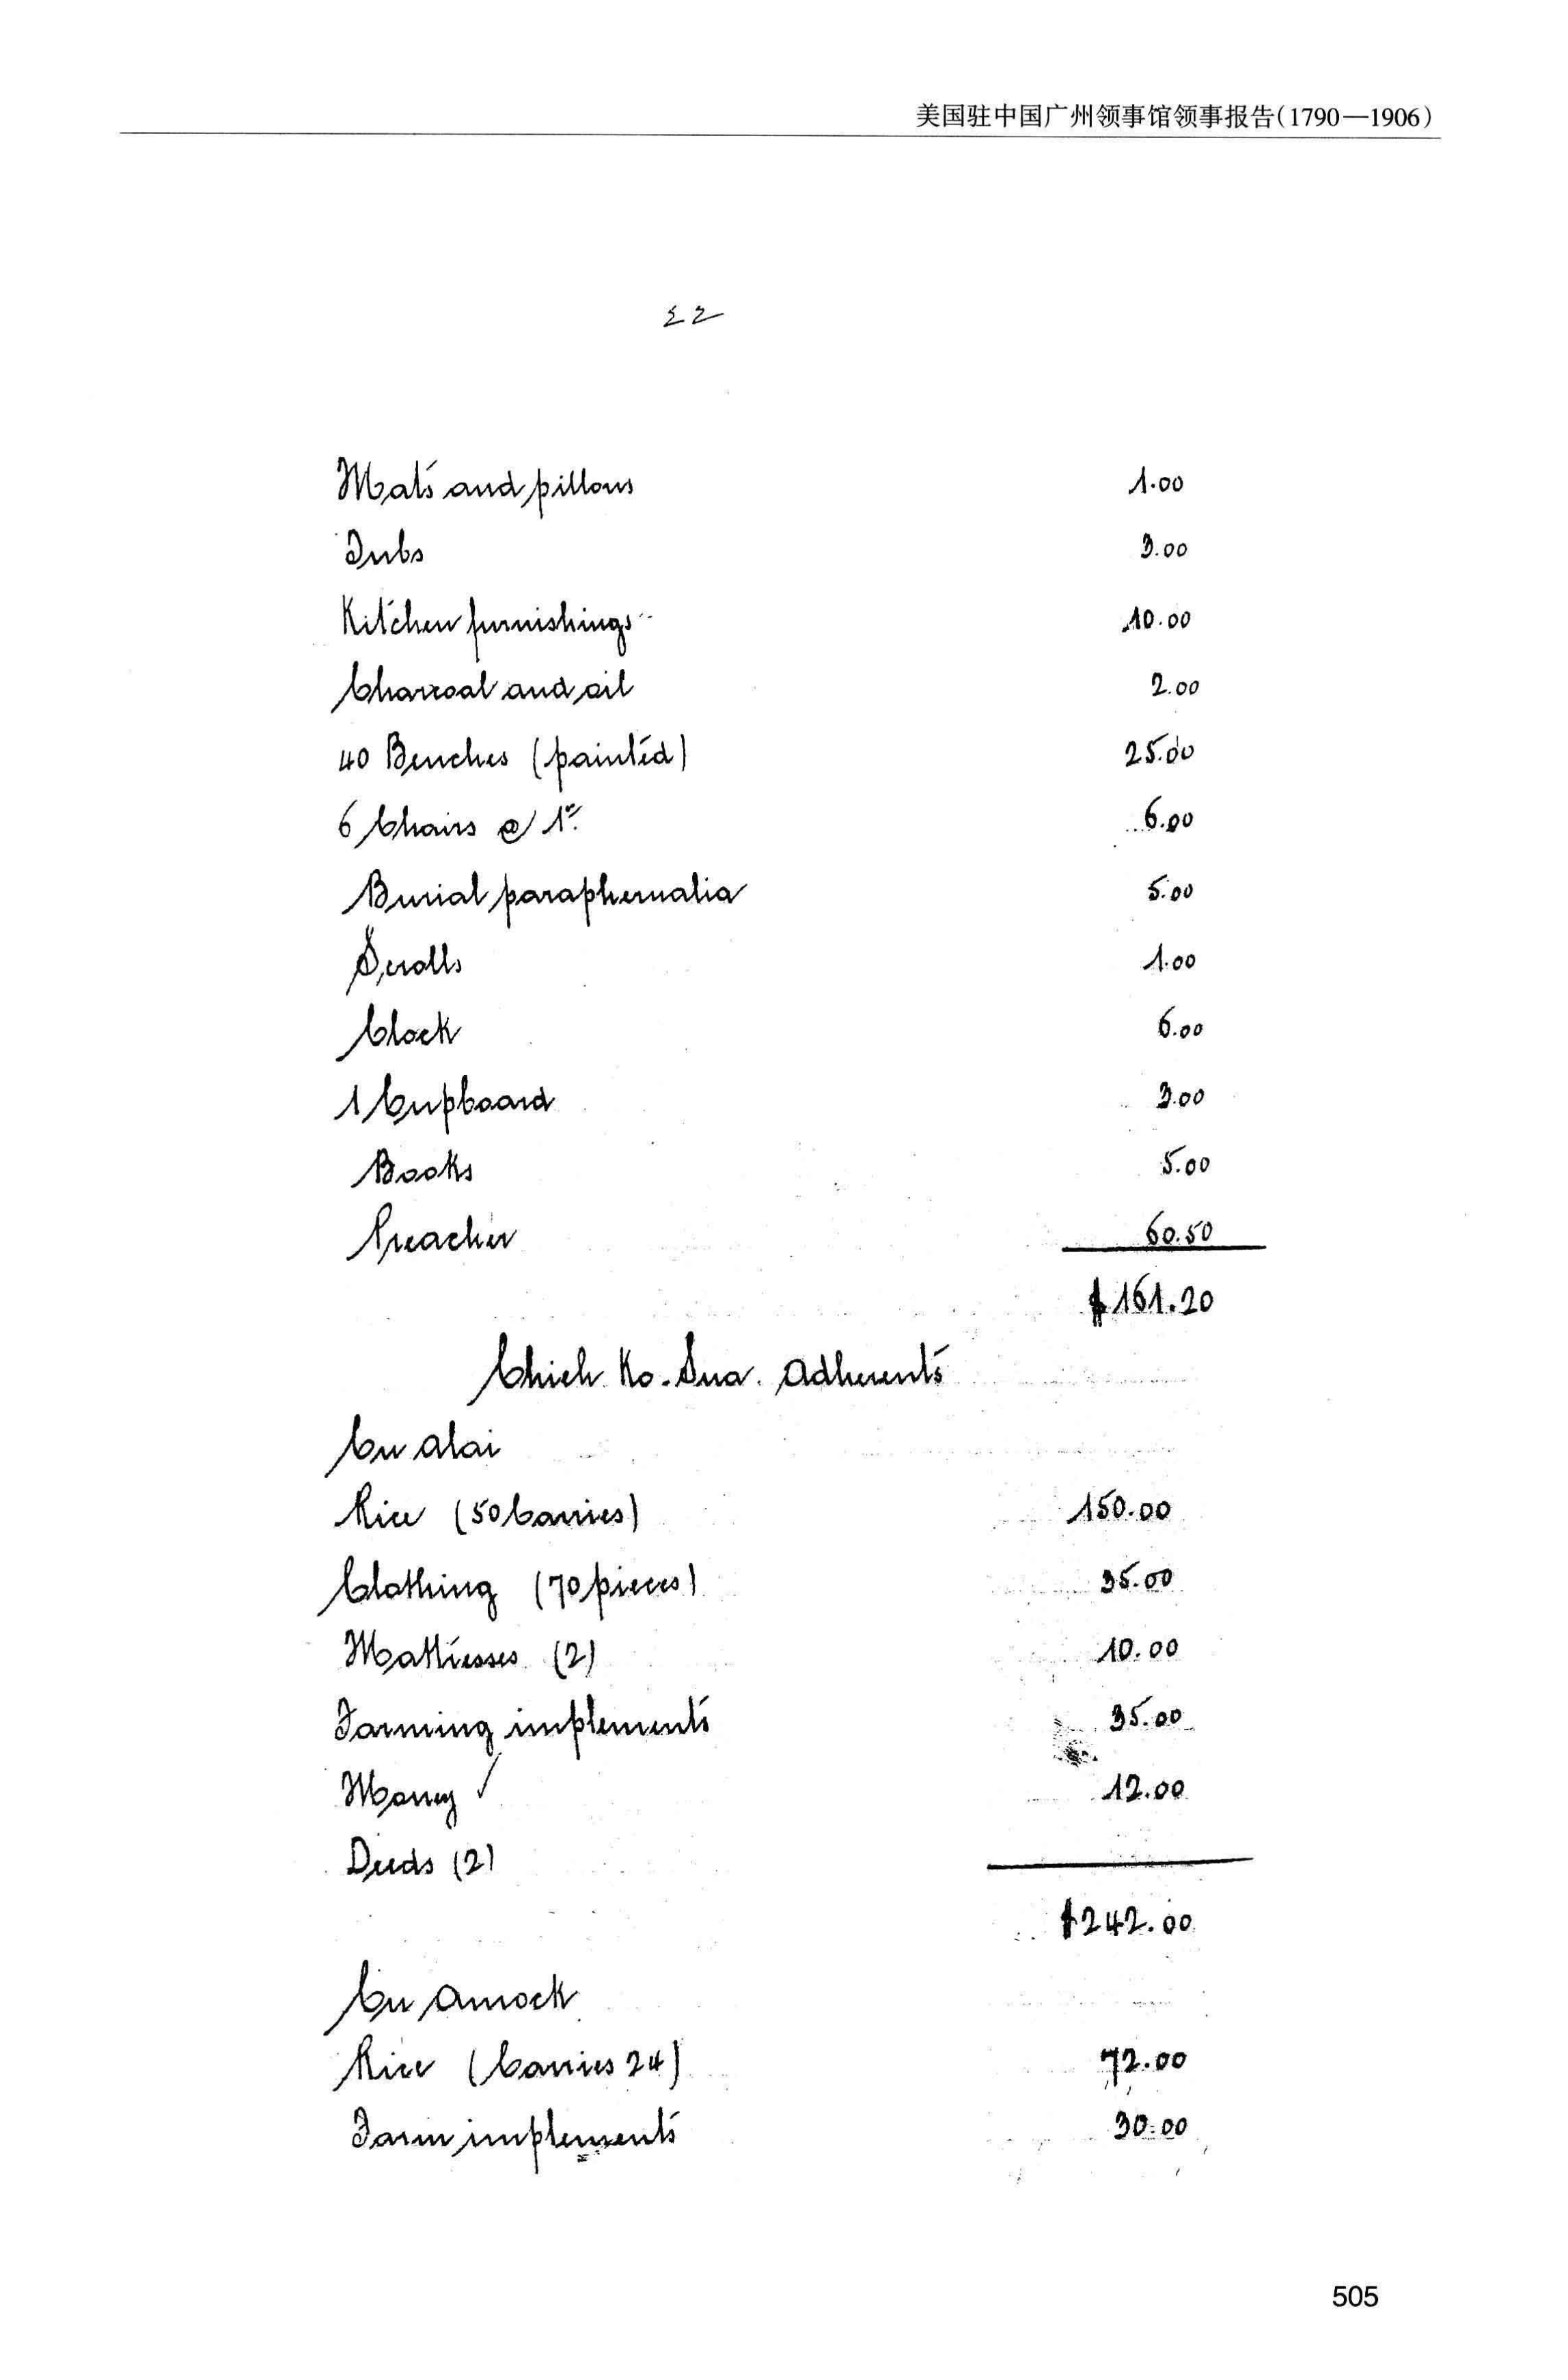 美国驻中国广州领事馆领事报告(1790—1906)
22
Mats and pillows 1.00
Tubs 3.00
Kitchen furnishings 10.00
Charcoal and oil 2.00
40 Benches (painted) 25.00
6 Chairs @ 1.00 6.00
Burial paraphernalia 5.00
Scrolls 1.00
Clock 6.00
1 Cupboard 3.00
Books 5.00
Preacher 60.50
$161.20
Chieh. Ko. Sua. Adherents
Cu Alai
Rice (50 Carries) 150.00
Clothing (70 pieces) 35.00
Mattresses (2) 10.00
Farming implements 35.00
Money ✓ 12.00
Deeds (2)
$242.00
Cu Amock
Rice (Carries 24) 72.00
Farm implements 30.00
505